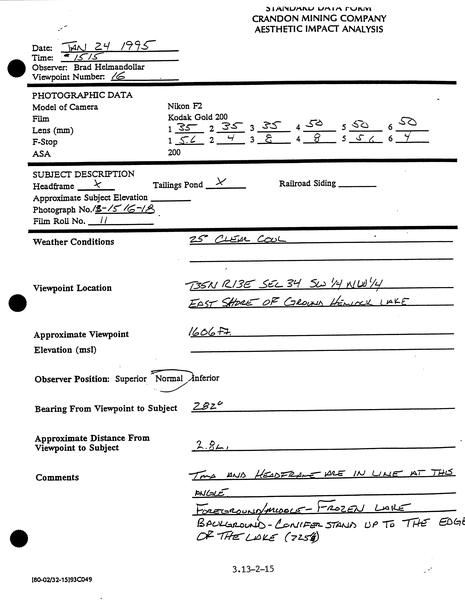 STANDARD DATA FORM
CRANDON MINING COMPANY
AESTHETIC IMPACT ANALYSIS
Date: JAN 24 1995
Time: 1515
Observer: Brad Helmandollar
Viewpoint Number: 16
PHOTOGRAPHIC DATA
Model of Camera Nikon F2
Film Kodak Gold 200
Lens (mm) 1 35 2 35 3 35 4 50 5 50 6 50
F-Stop 1 5.6 2 4 3 8 4 8 5 5.6 6 4
ASA 200
SUBJECT DESCRIPTION
Headframe X Tailings Pond X Railroad Siding
Approximate Subject Elevation
Photograph No. 13-15 16-18
Film Roll No. 11
Weather Conditions 25° CLEAR COOL
Viewpoint Location T35N R13E SEC 34 SW 1/4 NW 1/4
EAST SHORE OF GROUND HEMLOCK LAKE
Approximate Viewpoint 1606 FT.
Elevation (msl)
Observer Position: Superior Normal Inferior
Bearing From Viewpoint to Subject 282°
Approximate Distance From 2.8
Viewpoint to Subject
Comments TMA AND HEADFRAME ARE IN LINE AT THIS
ANGLE
FOREGROUND/MIDDLE - FROZEN LAKE
BACKGROUND - CONIFER STAND UP TO THE EDGE
OF THE LAKE
3.13-2-15
[80-02/32-15]93C049